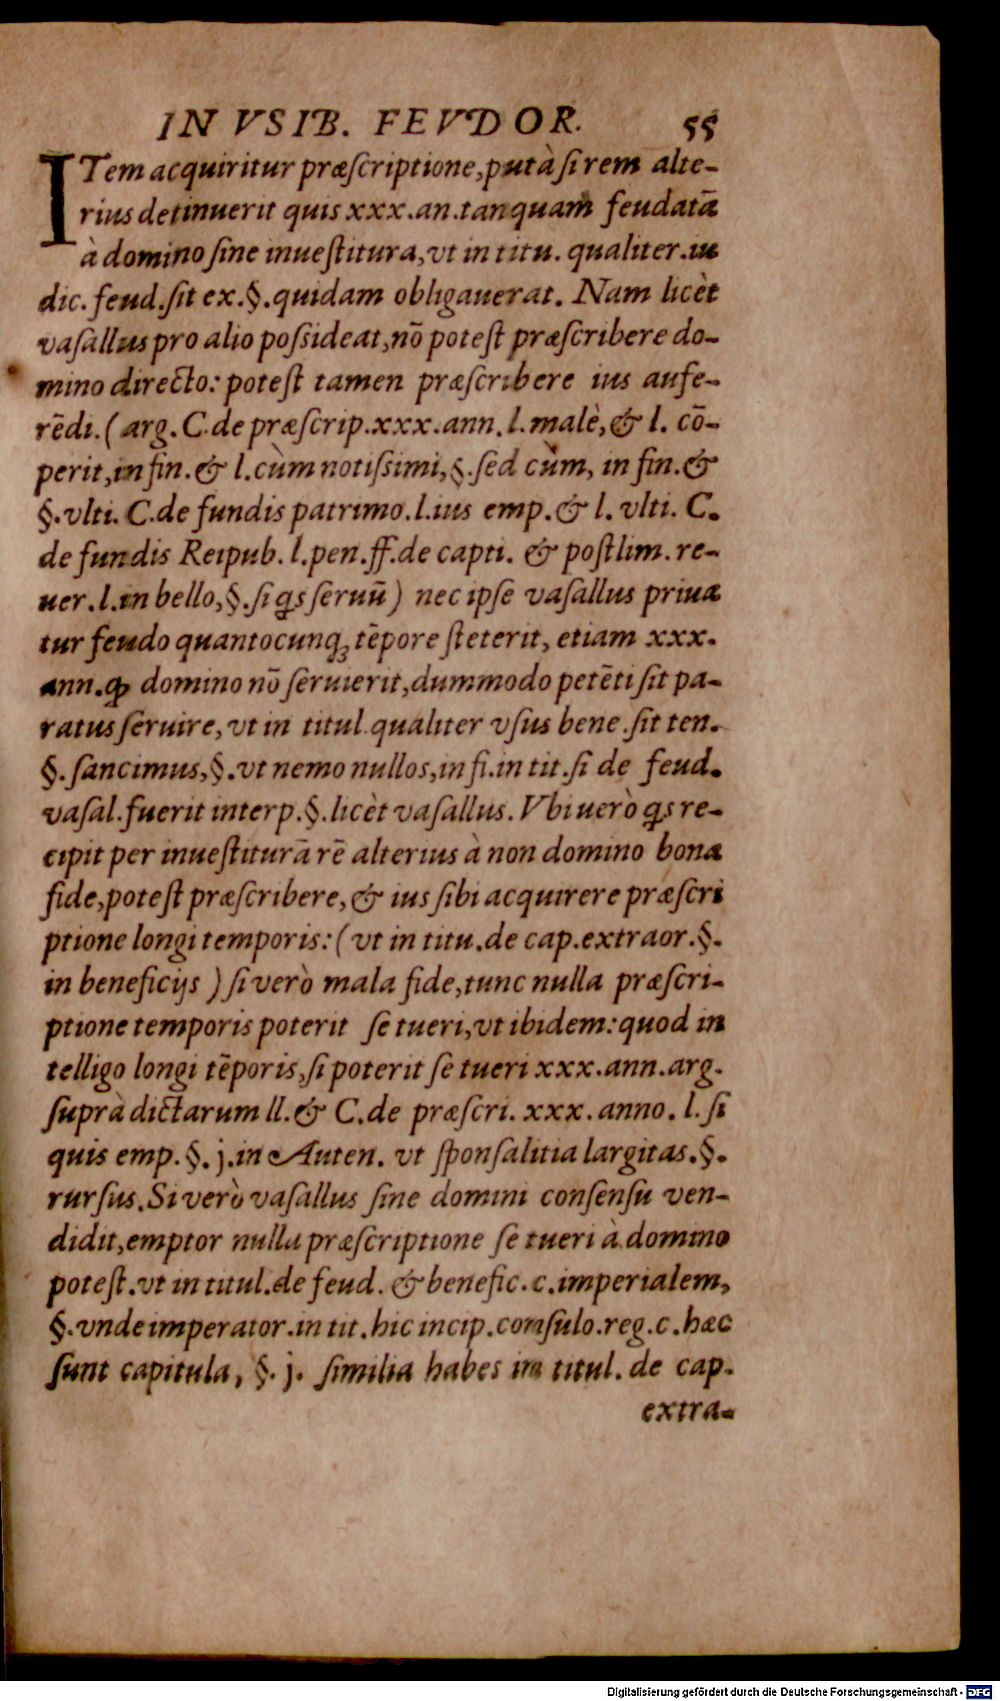 IN VSIB. FEVDOR. 55
ITem acquiritur præſcriptione,putà ſi rem alte-
rius detinuerit quis xxx.an.tanquam feudatā
à domino ſine inueſtitura,vt in titu. qualiter.iu
dic. feud.ſit ex.§.quidam obligauerat. Nam licèt
vaſallus pro alio poſsideat,nō poteſt præſcribere do-
mino directo: poteſt tamen præſcribere ius aufe-
rēdi.( arg. C.de præſcrip.xxx.ann.l.malè,& l. cō-
perit,in fin.& l.cùm notiſsimi,§.ſed cùm, in fin.&
§.vlti. C.de fundis patrimo.l.ius emp.& l. vlti. C.
de fundis Reipub. l.pen.ff.de capti. & poſtlim. re-
uer.l.in bello,§.ſi q̃s ſeruū) nec ipſe vaſallus priua
tur feudo quantocunqꝫ tēpore ſteterit, etiam xxx.
ann.ꝙ domino nō ſeruierit,dummodo petēti ſit pa-
ratus ſeruire,vt in titul.qualiter vſus bene.ſit ten.
§. ſancimus,§.vt nemo nullos,in fi.in tit.ſi de feud.
vaſal.fuerit interp.§.licèt vaſallus. Vbi uerò q̃s re-
cipit per inueſtiturā rē alterius à non domino bona
fide,poteſt præſcribere,& ius ſibi acquirere præſcri
ptione longi temporis:(vt in titu.de cap.extraor.§.
in beneficijs ) ſi verò mala fide,tunc nulla præſcri-
ptione temporis poterit ſe tueri,vt ibidem:quod in
telligo longi tēporis,ſi poterit ſe tueri xxx.ann.arg.
ſuprà dictarum ll.& C.de præſcri. xxx. anno. l. ſi
quis emp.§. j.in Auten. vt ſponſalitia largitas.§.
rurſus.Si verò vaſallus ſine domini conſenſu ven-
didit,emptor nulla præſcriptione ſe tueri à domino
poteſt.vt in titul.de feud. & benefic.c.imperialem,
§.vnde imperator.in tit.hic incip.conſulo.reg.c.hæc
ſunt capitula, §. j. ſimilia habes in titul. de cap.
extra-
Digitalisierung gefördert durch die Deutsche Forschungsgemeinschaft - DFG